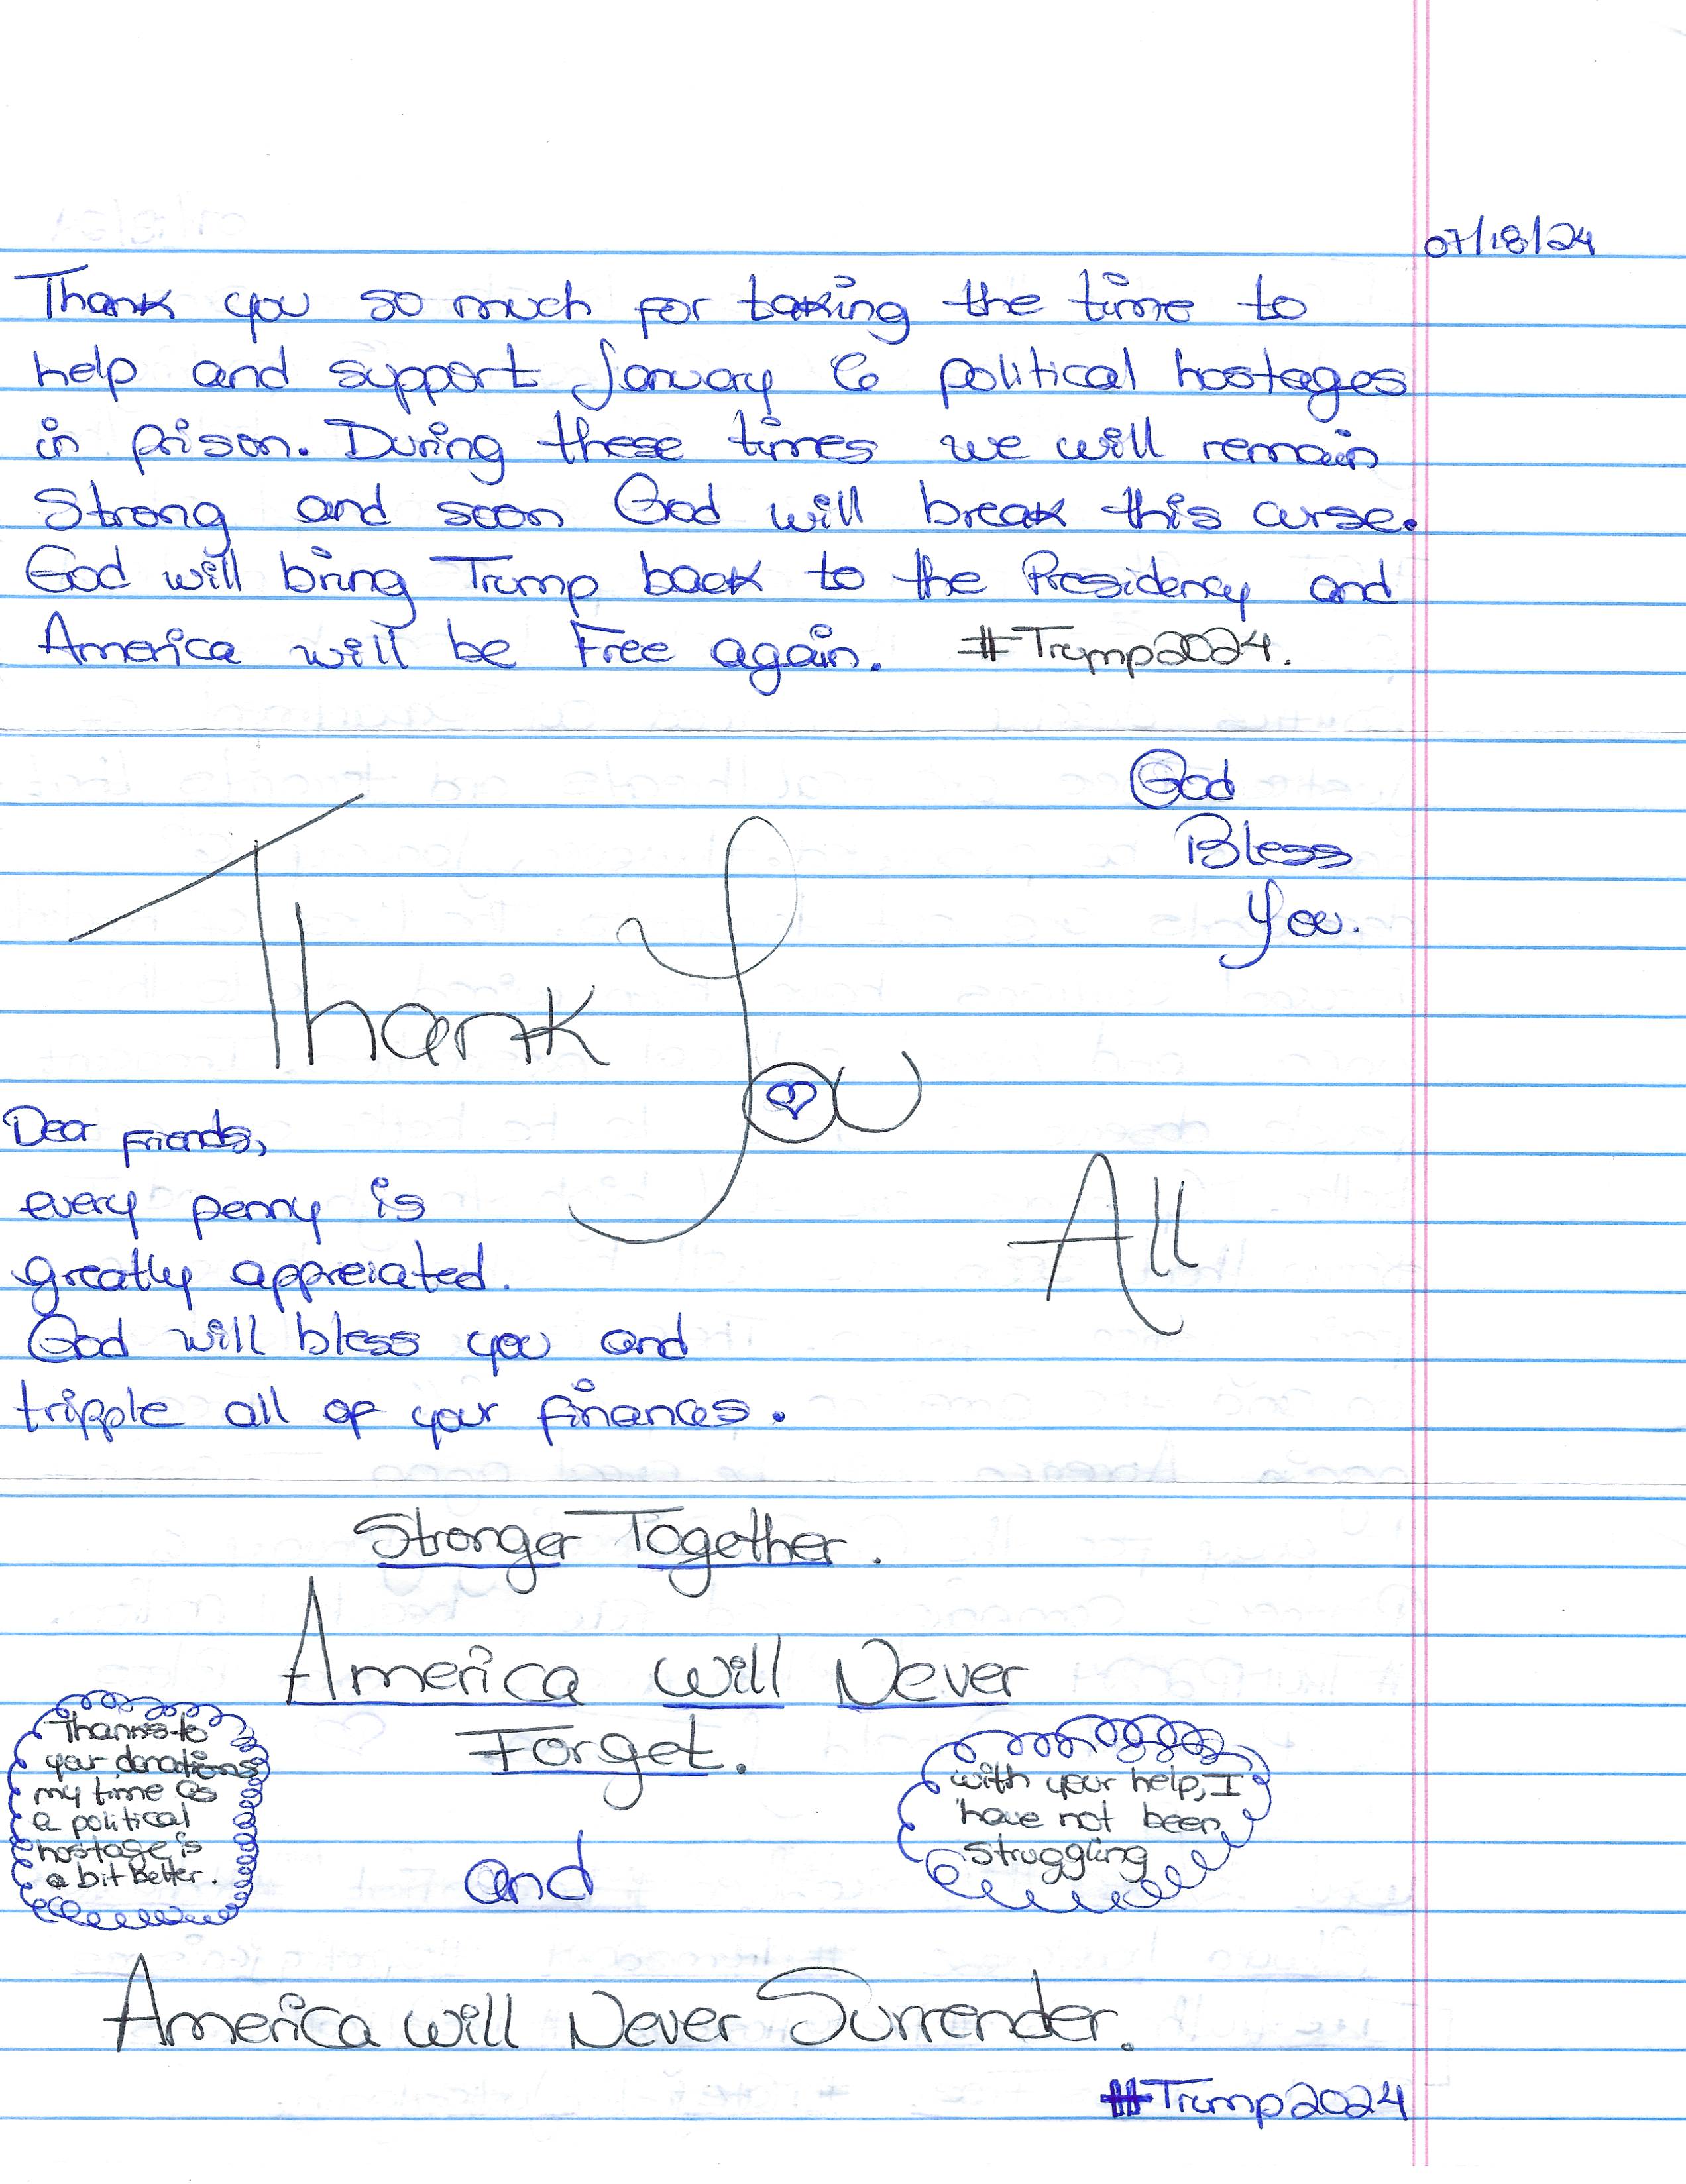 07/18/24
Thank you so much for taking the time to
help and support January 6 political hostages
in prison. During these times we will remain
Strong and soon God will break this curse.
God will bring Trump back to the Presidency and
America will be Free again. #Trump2024.
God
Bless
You.
Thank You
All
Dear Friends,
every penny is
greatly appreiated.
God will bless you and
tripple all of your finances.
Stronger Together.
America Will Never
Forget.
Thanks to
your donations
my time as
a political
hostage is
a bit better.
with your help, I
have not been
struggling
and
America Will Never Surrender.
#Trump2024